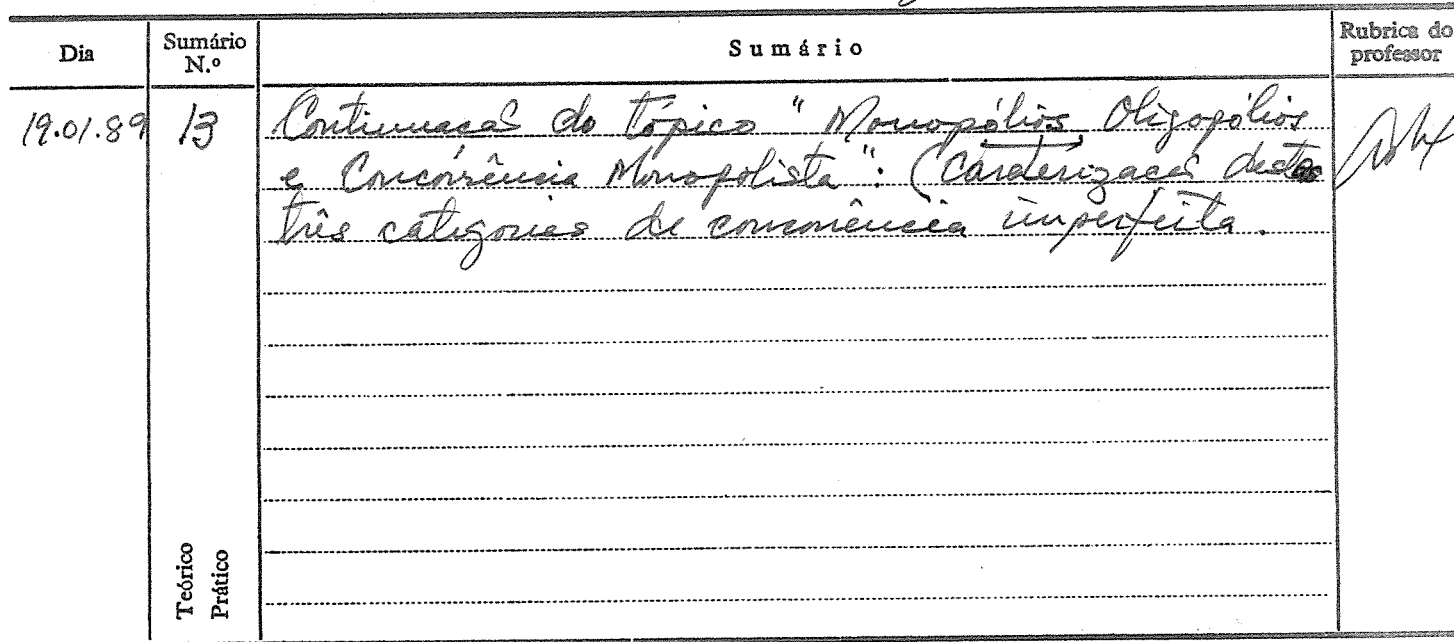 Dia
Sumário N.º
Sumário
Rubrica do professor
19.01.89
13
Continuação do tópico "Monopólios, Oligopólios
e Concorrência Monopolista": (Caracterização destas
três categorias de concorrência imperfeita.
Teórico
Prático